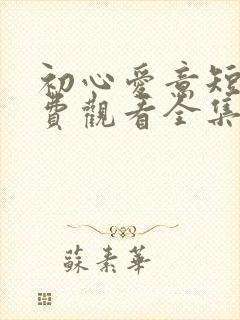 初心愛意短
費觀看全集
蘇素華